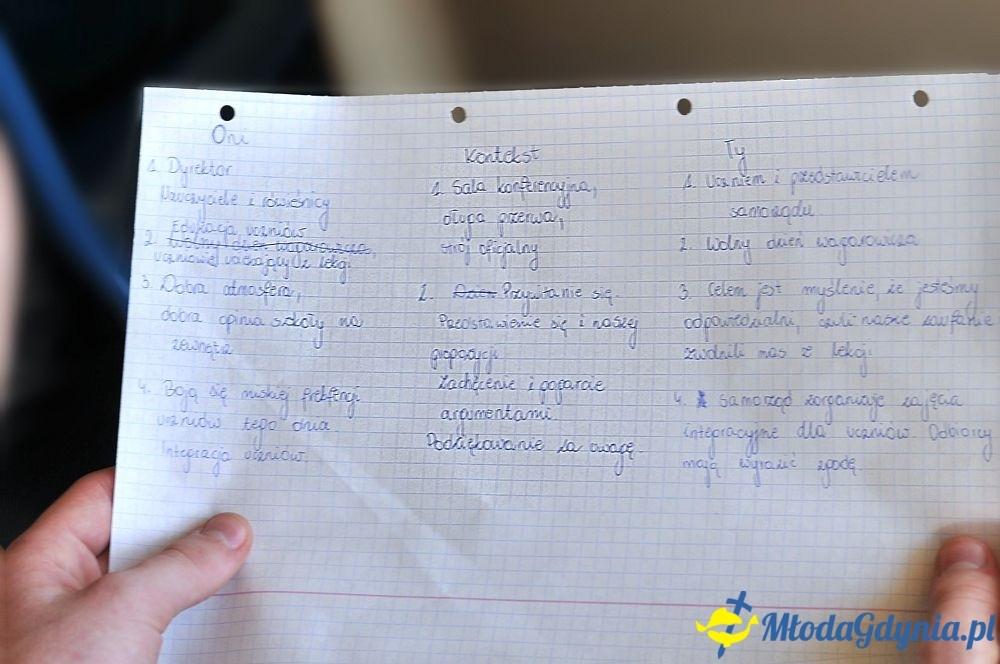 Oni
1. Dyrektor
Nauczyciele i rówieśnicy
Edukacja uczniów
2. Wolny dzień wagarowicza,
uczniowie z lekcji
3. Dobra atmosfera,
dobra opinia szkoły na
zewnątrz
4. Boją się niskiej frekfencji
uczniów tego dnia.
Integracja uczniów.
Kontekst
1. Sala konferencyjna,
długa przerwa,
strój oficjalny
2. Dzień Przywitanie się.
Przedstawienie się i naszej
propozycji
Zachęcenie i poparcie
argumentami.
Podziękowanie za uwagę.
Ty
1. Uczniem i przedstawicielem
samorządu.
2. Wolny dzień wagarowicza
3. Celem jest myślenie, że jesteśmy
odpowiedzialni, czuli nasze zaufanie
zwolnili nas z lekcji
4. Samorząd zorganizuje zajęcia
integracyjne dla uczniów. Odbiorcy
mają wyrazić zgodę.
MłodaGdynia.pl